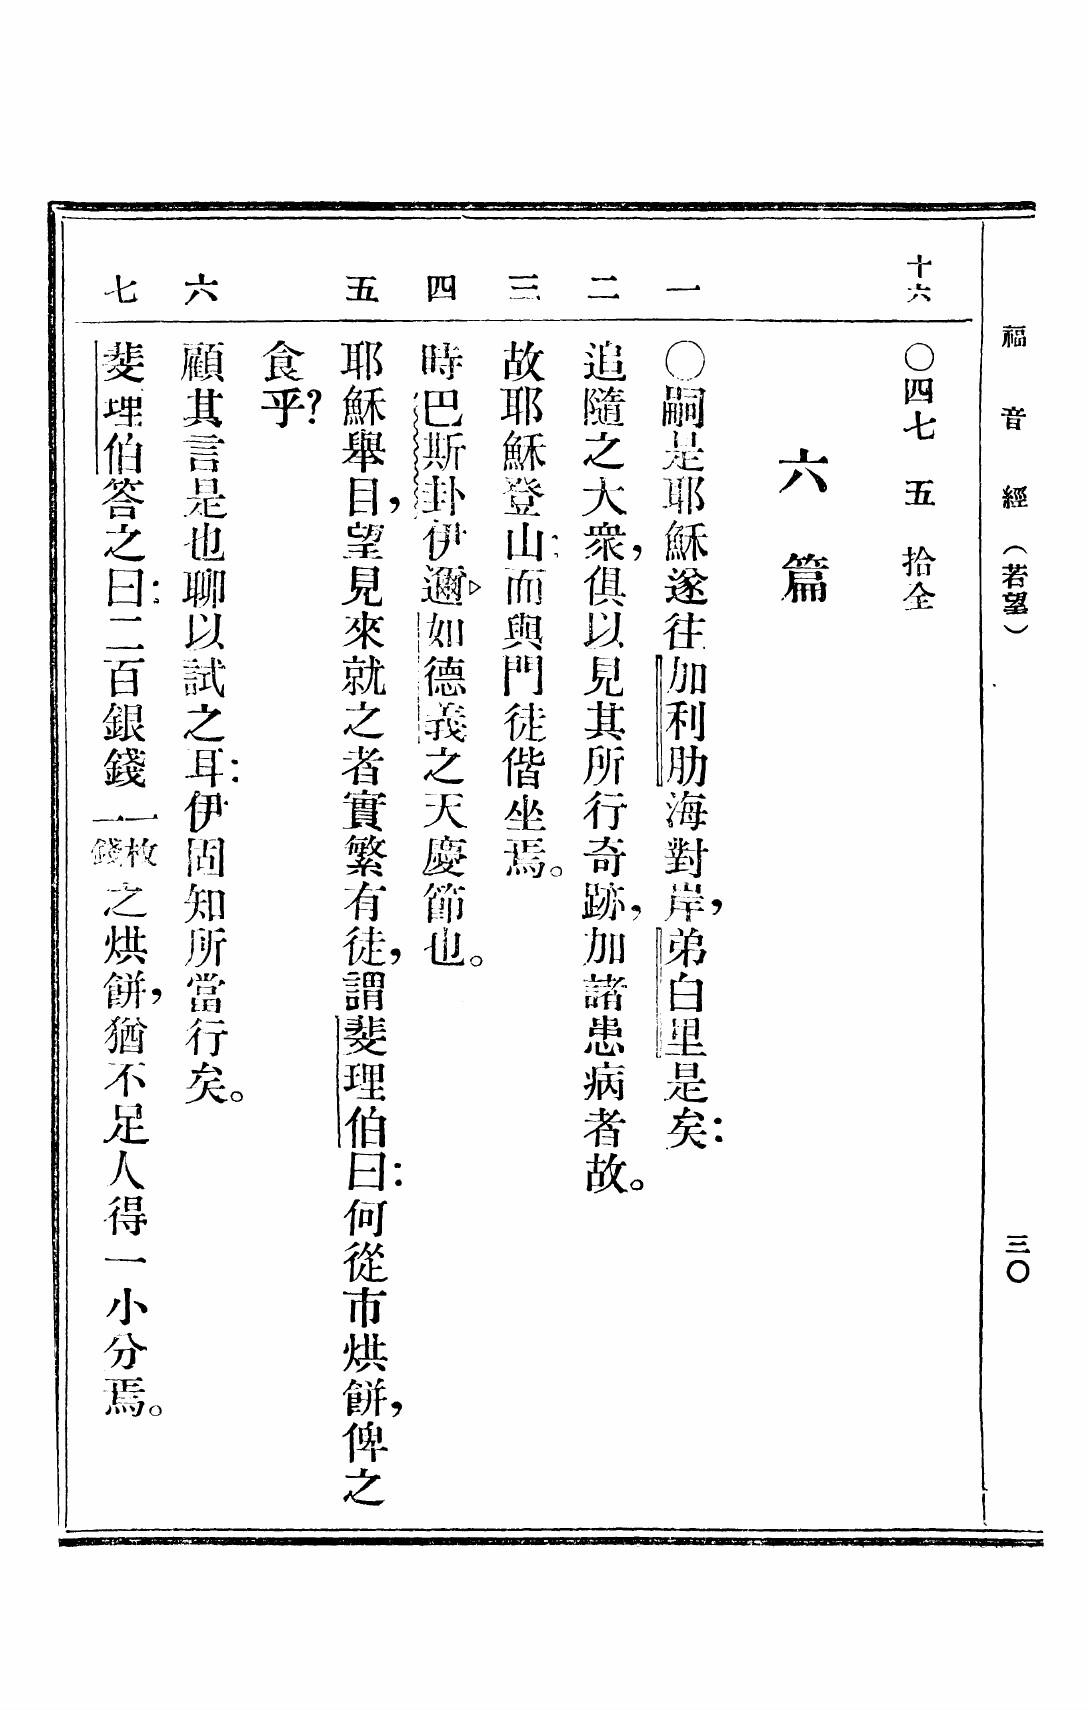 福音經（若望） 三〇
十六 〇四七 五 拾全
六篇
一 〇嗣是耶穌遂往加利肋海對岸，弟白里是矣：
二 追隨之大衆，俱以見其所行奇跡，加諸患病者故。
三 故耶穌登山：而與門徒偕坐焉。
四 時巴斯卦伊邇▷如德義之天慶節也。
五 耶穌舉目，望見來就之者實繁有徒，謂斐理伯曰：何從市烘餅，俾之
食乎？
六 顧其言是也聊以試之耳：伊固知所當行矣。
七 斐理伯答之曰：二百銀錢一枚一錢之烘餅，猶不足人得一小分焉。